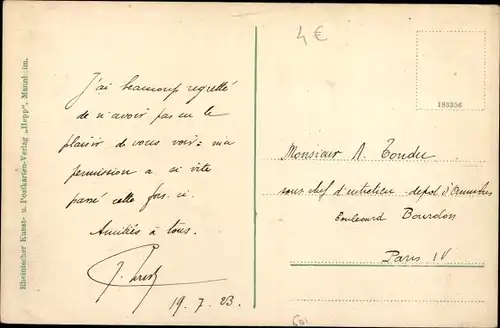 Rheinischer Kunst- u. Postkarten-Verlag „Hepp", Mannheim.
J'ai beaucoup regretté
de n'avoir pas eu le
plaisir de vous voir = ma
permission a si vite
passé cette fois. ci.
Amitiés à tous.
19.7.23.
4 €
183356
Monsieur A. Tondu
sous chef d'entretien - depot d'Omnibus
Boulevard Bourdon
Paris IV